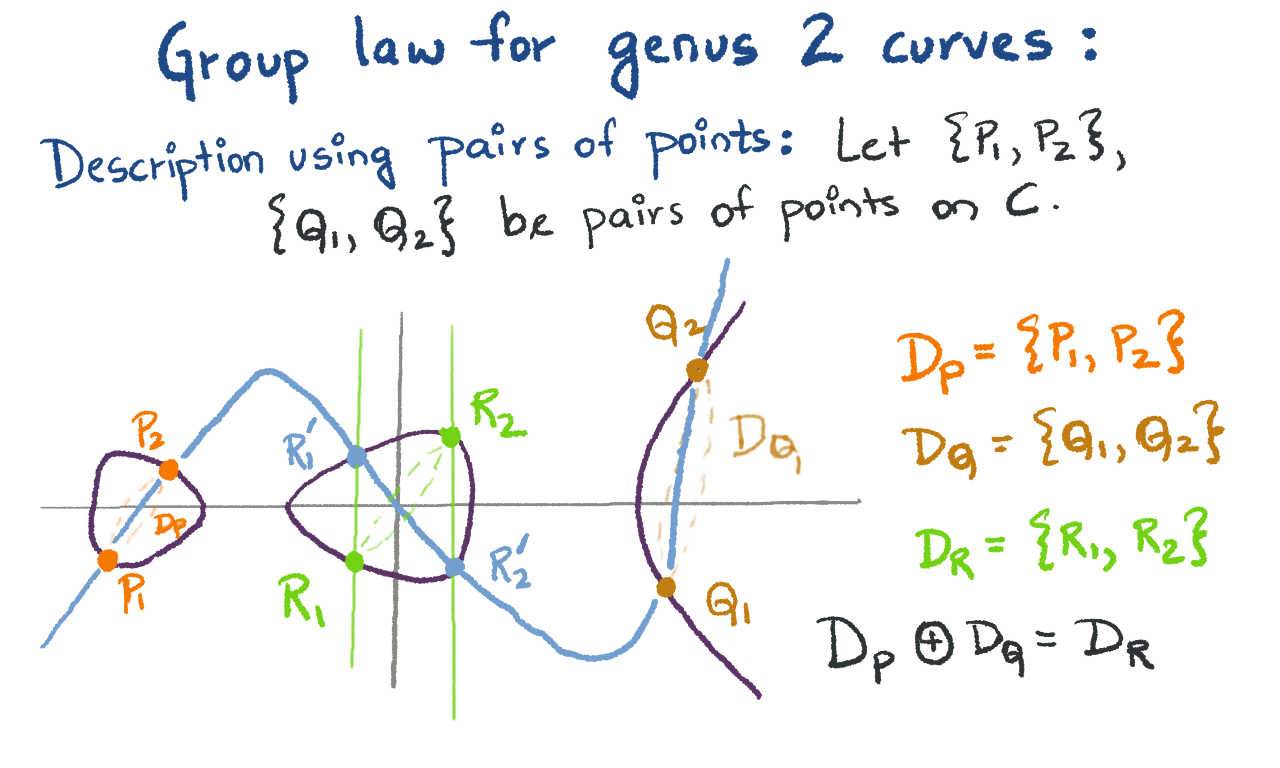 Group law for genus 2 curves:
Description using pairs of points: Let {P₁, P₂},
{Q₁, Q₂} be pairs of points on C.
Q₂
D_P = {P₁, P₂}
P₂
R₁′
R₂
D_Q
D_Q = {Q₁, Q₂}
D_P
R₂′
D_R = {R₁, R₂}
P₁
R₁
Q₁
D_P ⊕ D_Q = D_R